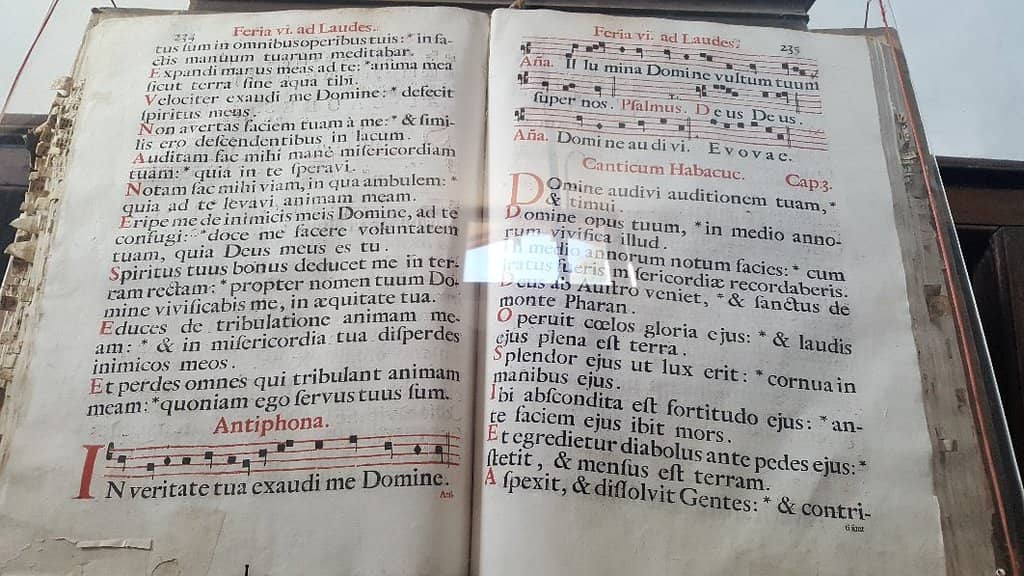 234
Feria vi. ad Laudes.
tus sum in omnibus operibus tuis: * in fa-
ctis manuum tuarum meditabar.
Expandi manus meas ad te: * anima mea
sicut terra sine aqua tibi.
Velociter exaudi me Domine: * defecit
spiritus meus.
Non avertas faciem tuam à me: * & simi-
lis ero descendentibus in lacum.
Auditam fac mihi manè misericordiam
tuam: * quia in te speravi.
Notam fac mihi viam, in qua ambulem: *
quia ad te levavi animam meam.
Eripe me de inimicis meis Domine, ad te
confugi: * doce me facere voluntatem
tuam, quia Deus meus es tu.
Spiritus tuus bonus deducet me in ter-
ram rectam: * propter nomen tuum Do-
mine vivificabis me, in æquitate tua.
Educes de tribulatione animam me-
am: * & in misericordia tua disperdes
inimicos meos.
Et perdes omnes qui tribulant animam
meam: * quoniam ego servus tuus sum.
Antiphona.
IN veritate tua exaudi me Domine.
Ant.
Feria vi. ad Laudes.
235
Aña. Il lu mina Domine vultum tuum
super nos. Psalmus. Deus Deus.
Aña. Domi ne au di vi. Evovae.
Canticum Habacuc. Cap. 3.
Domine audivi auditionem tuam, *
& timui.
Domine opus tuum, * in medio anno-
rum vivifica illud.
In medio annorum notum facies: * cum
iratus fueris misericordiæ recordaberis.
Deus ab Austro veniet, * & sanctus de
monte Pharan.
Operuit cœlos gloria ejus: * & laudis
ejus plena est terra.
Splendor ejus ut lux erit: * cornua in
manibus ejus.
Ibi abscondita est fortitudo ejus: * an-
te faciem ejus ibit mors.
Et egredietur diabolus ante pedes ejus: *
stetit, & mensus est terram.
Aspexit, & dissolvit Gentes: * & contri-